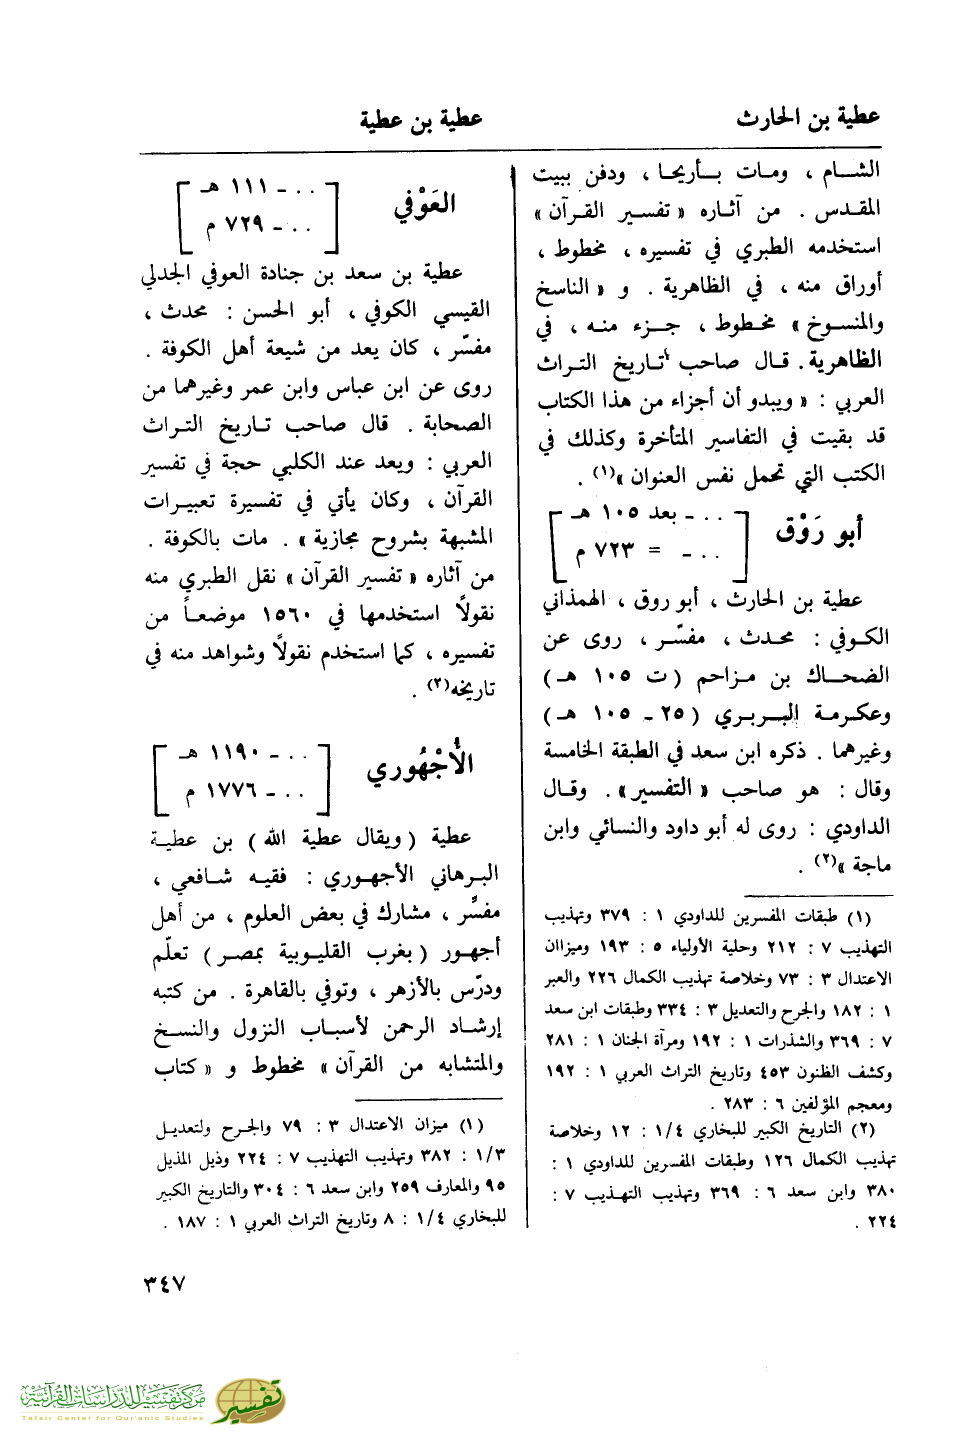 عطية بن الحارث
عطية بن عطية
الشام ، ومات بأريحا ، ودفن ببيت
المقدس . من آثاره « تفسير القرآن »
استخدمه الطبري في تفسيره ، مخطوط ،
أوراق منه ، في الظاهرية . و « الناسخ
والمنسوخ » مخطوط ، جزء منه ، في
الظاهرية . قال صاحب تاريخ التراث
العربي : « ويبدو أن أجزاء من هذا الكتاب
قد بقيت في التفاسير المتأخرة وكذلك في
الكتب التي تحمل نفس العنوان »(١) .
أبو رَوْق
[ . . . ـ بعد ١٠٥ هـ
. . . ـ = ٧٢٣ م ]
عطية بن الحارث ، أبو روق ، الهمذاني
الكوفي : محدث ، مفسّر ، روى عن
الضحاك بن مزاحم ( ت ١٠٥ هـ )
وعكرمة البربري ( ٢٥ ـ ١٠٥ هـ )
وغيرهما . ذكره ابن سعد في الطبقة الخامسة
وقال : هو صاحب « التفسير » . وقال
الداودي : روى له أبو داود والنسائي وابن
ماجة »(٢) .
(١) طبقات المفسرين للداودي ١ : ٣٧٩ وتهذيب
التهذيب ٧ : ٢١٢ وحلية الأولياء ٥ : ١٩٣ وميزاان
الاعتدال ٣ : ٧٣ وخلاصة تهذيب الكمال ٢٢٦ والعبر
١ : ١٨٢ والجرح والتعديل ٣ : ٣٣٤ وطبقات ابن سعد
٧ : ٣٦٩ والشذرات ١ : ١٩٢ ومرآة الجنان ١ : ٢٨١
وكشف الظنون ٤٥٣ وتاريخ التراث العربي ١ : ١٩٢
ومعجم المؤلفين ٦ : ٢٨٣ .
(٢) التاريخ الكبير للبخاري ١/٤ : ١٢ وخلاصة
تهذيب الكمال ١٢٦ وطبقات المفسرين للداودي ١ :
٣٨٠ وابن سعد ٦ : ٣٦٩ وتهذيب التهذيب ٧ :
٢٢٤ .
العَوْفي
[ . . . ـ ١١١ هـ
. . . ـ ٧٢٩ م ]
عطية بن سعد بن جنادة العوفي الجدلي
القيسي الكوفي ، أبو الحسن : محدث ،
مفسّر ، كان يعد من شيعة أهل الكوفة .
روى عن ابن عباس وابن عمر وغيرهما من
الصحابة . قال صاحب تاريخ التراث
العربي : ويعد عند الكلبي حجة في تفسير
القرآن ، وكان يأتي في تفسيرة تعبيرات
المشبهة بشروح مجازية » . مات بالكوفة .
من آثاره « تفسير القرآن » نقل الطبري منه
نقولًا استخدمها في ١٥٦٠ موضعاً من
تفسيره ، كما استخدم نقولًا وشواهد منه في
تاريخه(٢) .
الأُجْهُوري
[ . . . ـ ١١٩٠ هـ
. . . ـ ١٧٧٦ م ]
عطية ( ويقال عطية الله ) بن عطية
البرهاني الأجهوري : فقيه شافعي ،
مفسِّر ، مشارك في بعض العلوم ، من أهل
أجهور ( بغرب القليوبية بمصر ) تعلّم
ودرّس بالأزهر ، وتوفي بالقاهرة . من كتبه
إرشاد الرحمن لأسباب النزول والنسخ
والمتشابه من القرآن » مخطوط و « كتاب
(١) ميزان الاعتدال ٣ : ٧٩ والجرح ولتعديل
١/٣ : ٣٨٢ وتهذيب التهذيب ٧ : ٢٢٤ وذيل المذيل
٩٥ والمعارف ٢٥٩ وابن سعد ٦ : ٣٠٤ والتاريخ الكبير
للبخاري ١/٤ : ٨ وتاريخ التراث العربي ١ : ١٨٧ .
٣٤٧
مركز تفسير للدراسات القرآنية
Tafsir Center for Qur'anic Studies
تفسير